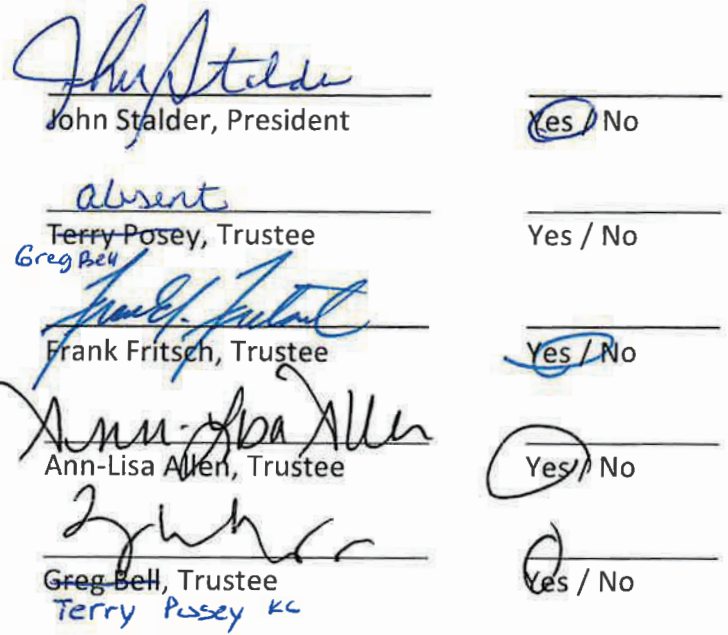 John Stalder
John Stalder, President Yes / No
absent
Terry Posey, Trustee Yes / No
Greg Bell
Frank Fritsch, Trustee Yes / No
Ann-Lisa Allen
Ann-Lisa Allen, Trustee Yes / No
Greg Bell, Trustee Yes / No
Terry Posey KC